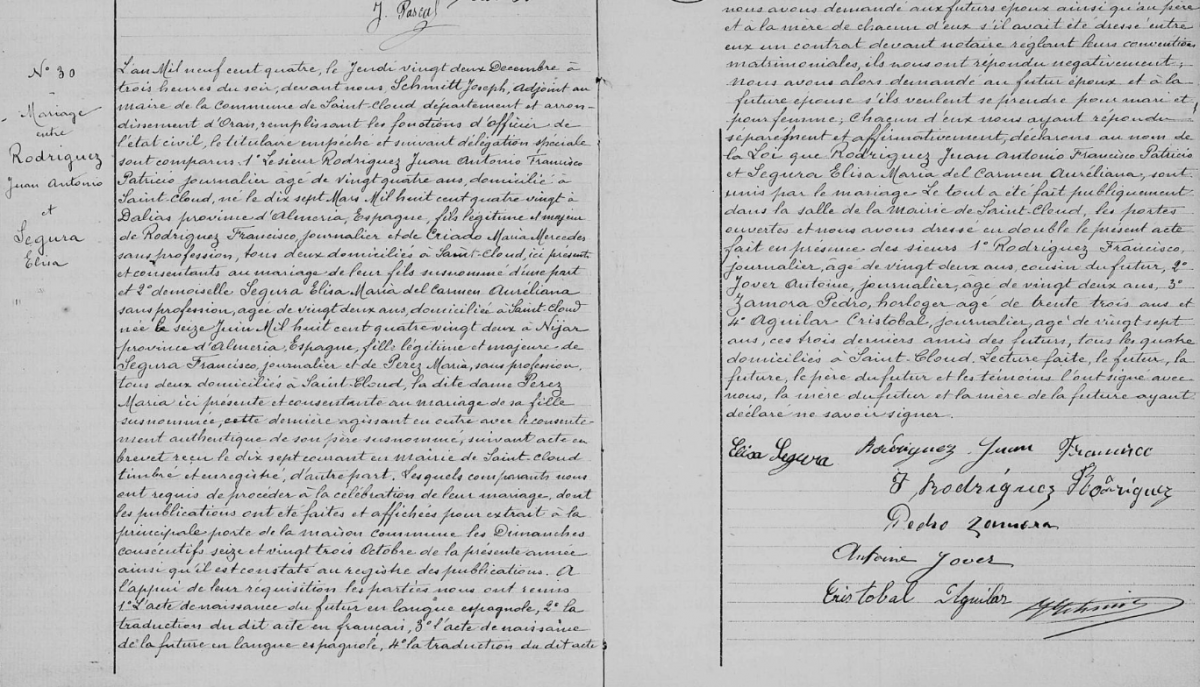 J. Pascal
N° 30
Mariage
entre
Rodriguez
Juan Antonio
et
Segura
Elisa
L'an Mil neuf cent quatre, le Jeudi vingt deux Decembre à
trois heures du soir, devant nous, Schmitt Joseph, adjoint au
maire de la Commune de Saint-Cloud, département et arron-
dissement d'Oran, remplissant les fonctions d'officier de
l'état civil, le titulaire empêché et suivant délégation spéciale
sont comparus. 1° Le sieur Rodriguez Juan Antonio Francisco
Patricio journalier âgé de vingt quatre ans, domicilié à
Saint-Cloud, né le dix sept Mars Mil huit cent quatre vingt à
Dalias province d'Almeria, Espagne, fils légitime et majeur
de Rodriguez Francisco, journalier et de Criado Maria Mercedes
sans profession, tous deux domiciliés à Saint-Cloud, ici présents
et consentants au mariage de leur fils susnommé d'une part
et 2° demoiselle Segura Elisa Maria del Carmen Auréliana
sans profession, agée de vingt deux ans, domiciliée à Saint-Cloud
née le seize Juin Mil huit cent quatre vingt deux à Nijar
province d'Almeria, Espagne, fille légitime et majeure de
Segura Francisco, journalier et de Perez Maria, sans profession,
tous deux domiciliés à Saint-Cloud, la dite dame Perez
Maria ici présente et consentante au mariage de sa fille
susnommée, cette dernière agissant en outre avec le consente-
ment authentique de son père susnommé, suivant acte en
brevet reçu le dix sept courant en mairie de Saint-Cloud
timbré et enregistré, d'autre part, Lesquels comparants nous
ont requis de procéder à la célébration de leur mariage, dont
les publications ont été faites et affichées pour extrait à la
principale porte de la maison commune les Dimanches
consécutifs seize et vingt trois Octobre de la présente année
ainsi qu'il est constaté au registre des publications. A
l'appui de leur réquisition les parties nous ont remis
1° L'acte de naissance du futur en langue espagnole, 2° la
traduction du dit acte en français, 3° l'acte de naissance
de la future en langue espagnole, 4° la traduction du dit acte
nous avons demandé aux futurs époux ainsi qu'au père
et à la mère de chacun d'eux s'il avait été dressé entre
eux un contrat devant notaire réglant leurs conventions
matrimoniales, ils nous ont répondu negativement;
nous avons alors demandé au futur époux et à la
future épouse s'ils veulent se prendre pour mari et
pour femme; Chacun d'eux nous ayant répondu
séparément et affirmativement, déclarons au nom de
la Loi que Rodriguez Juan Antonio Francisco Patricio
et Segura Elisa Maria del Carmen Auréliana, sont
unis par le mariage. Le tout a été fait publiquement
dans la salle de la Mairie de Saint-Cloud, les portes
ouvertes et nous avons dressé en double le présent acte
fait en présence des sieurs 1° Rodriguez Francisco,
journalier, âgé de vingt deux ans, cousin du futur, 2°
Jover Antoine, journalier, age de vingt deux ans, 3°
Zamora Pedro, horloger agé de trente trois ans et
4° Aguilar Cristobal, journalier, agé de vingt sept
ans, ces trois derniers amis des futurs, tous les quatre
domiciliés à Saint-Cloud. Lecture faite, le futur, la
future, le père du futur et les témoins l'ont signé avec
nous, la mère du futur et la mère de la future ayant
déclaré ne savoir signer.
Elisa Segura Rodriguez Juan Francisco
F Rodríguez Rodriguez
Pedro Zamora
Antoine Jover
Cristobal Aguilar